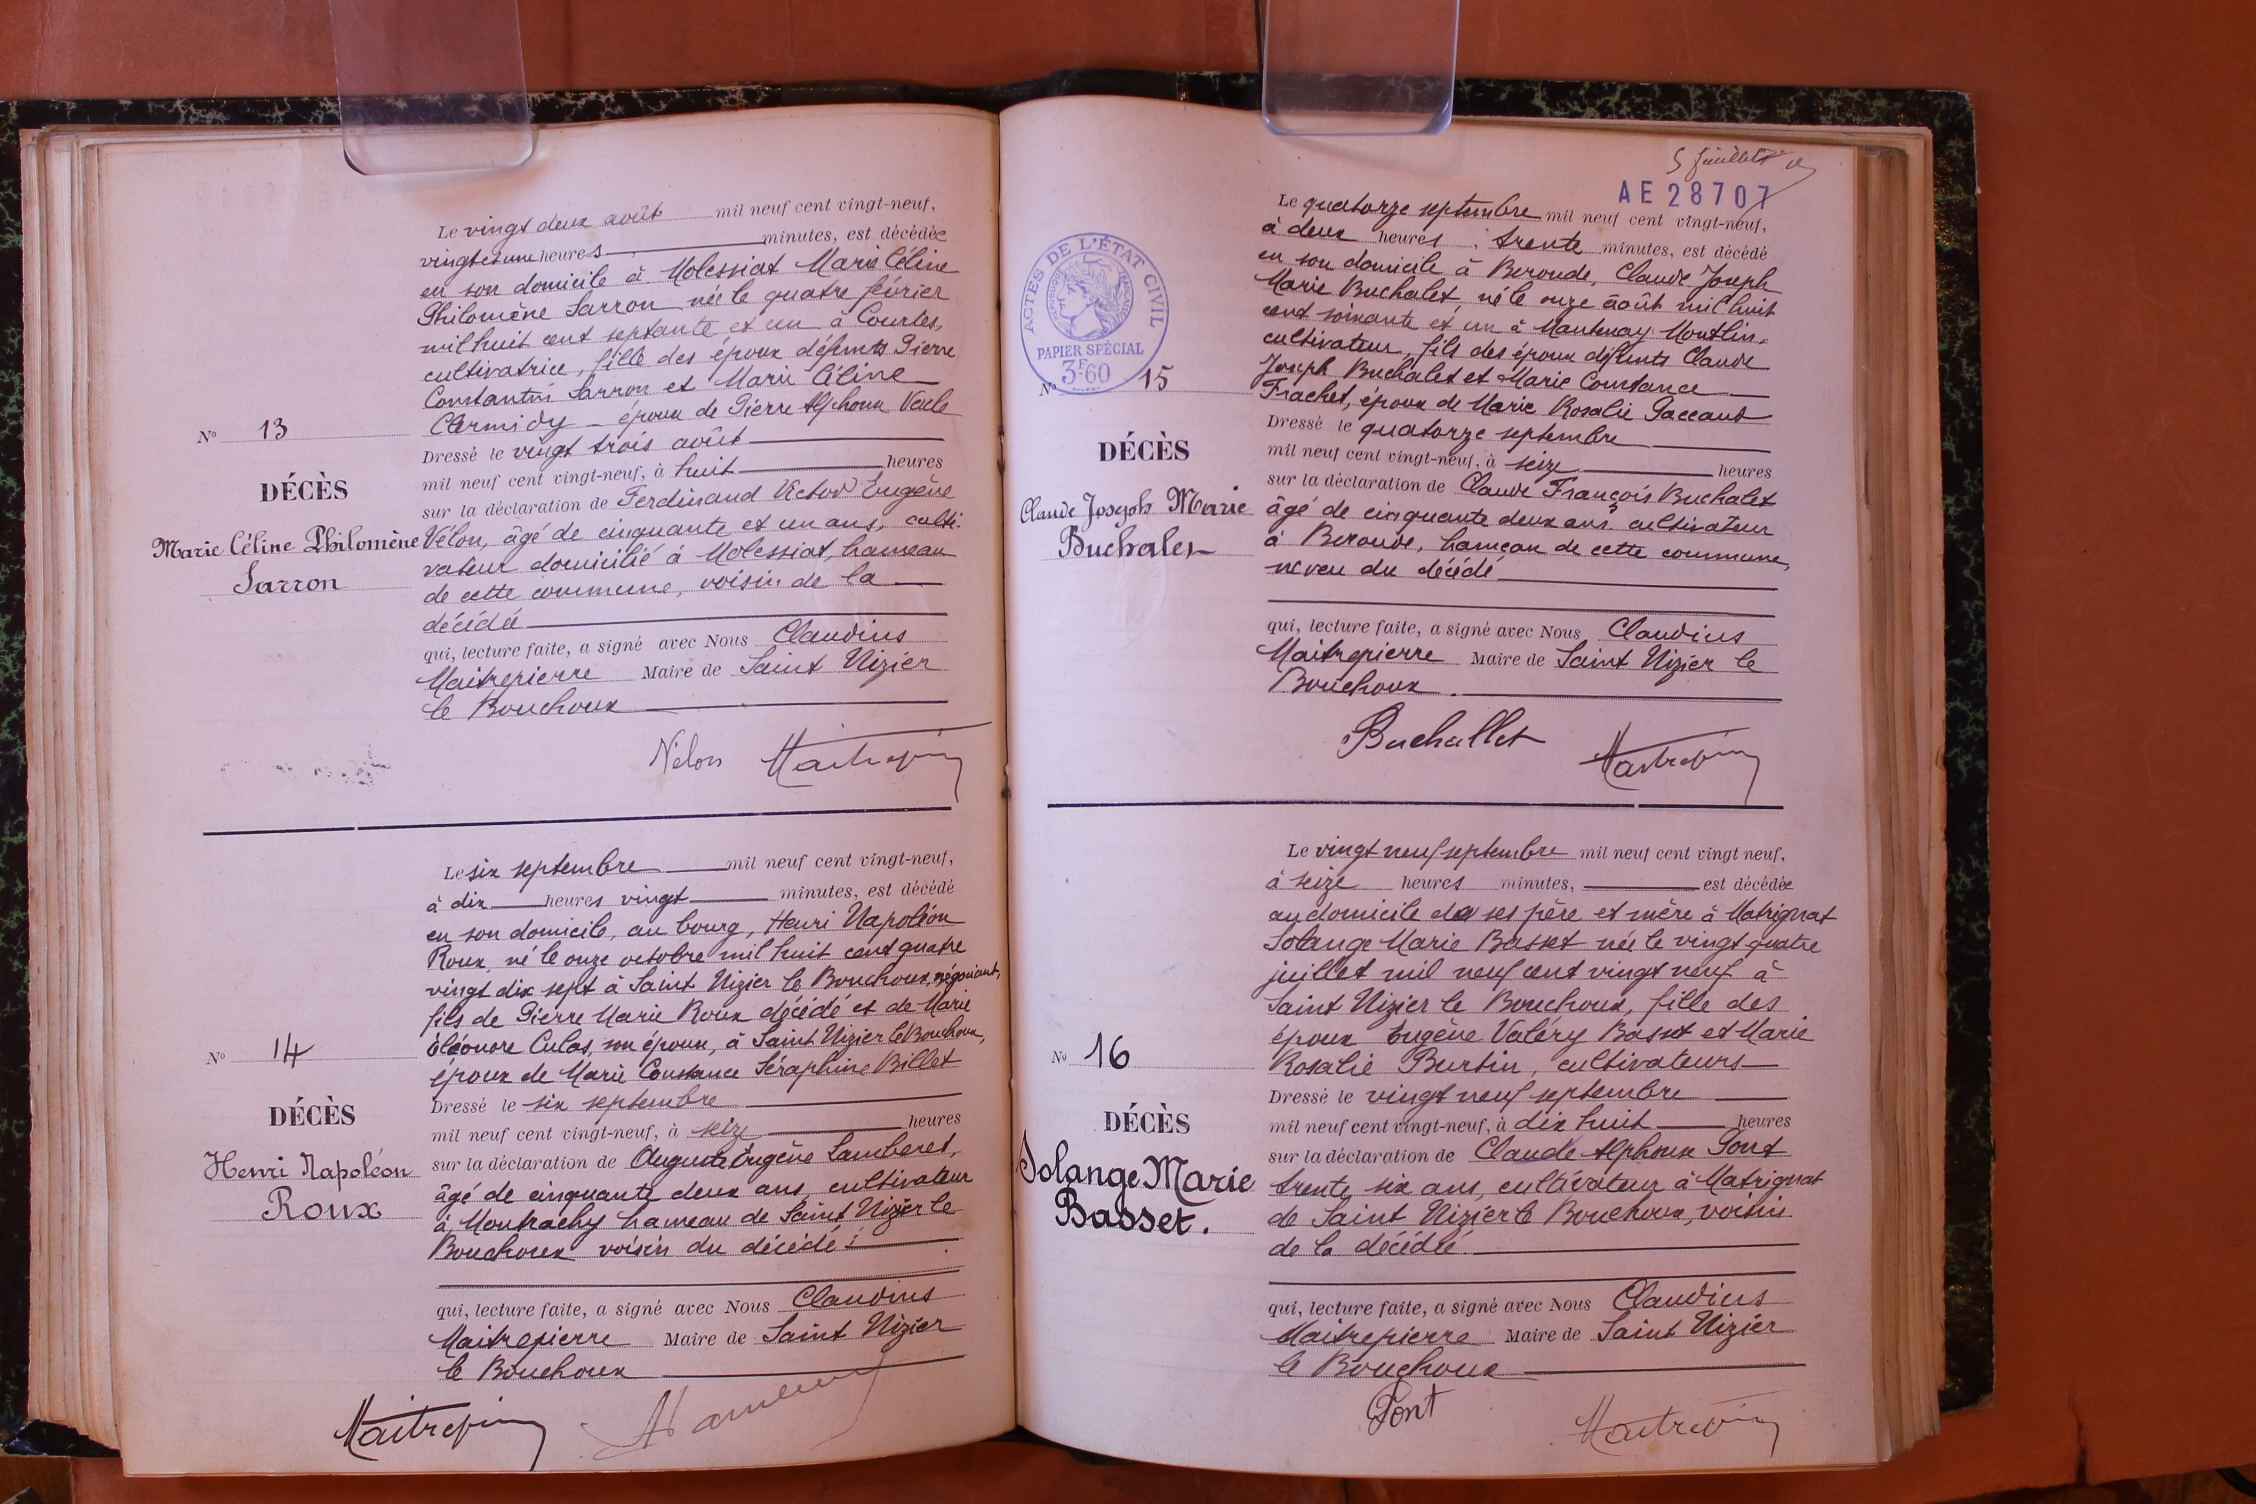 Le vingt deux août mil neuf cent vingt-neuf,
vingt et une heures minutes, est décédée
en son domicile à Molessiat Marie Céline
Philomène Sarron née le quatre février
mil huit cent septante et un à Courtes,
cultivatrice, fille des époux défunts Pierre
Constantin Sarron et Marie Céline
Cermidy épouse de Pierre Alphonse Veule
N° 13
Dressé le vingt trois août
mil neuf cent vingt-neuf, à huit heures
DÉCÈS
sur la déclaration de Ferdinand Victor Eugène
Marie Céline Philomène
Sarron
Vélon, âgé de cinquante et un ans, culti-
vateur domicilié à Molessiat, hameau
de cette commune, voisin de la
décédée
qui, lecture faite, a signé avec Nous Claudius
Maitrepierre Maire de Saint Nizier
le Bouchoux
Vélon Maitrepierre
Le six septembre mil neuf cent vingt-neuf,
à dix heures vingt minutes, est décédé
en son domicile, au bourg, Henri Napoléon
Roux, né le onze octobre mil huit cent quatre
vingt dix sept à Saint Nizier le Bouchoux, négociant,
fils de Pierre Marie Roux décédé et de Marie
Eléonore Culas, son épouse, à Saint Nizier le Bouchoux,
époux de Marie Constance Séraphine Billet
N° 14
Dressé le six septembre
mil neuf cent vingt-neuf, à seize heures
DÉCÈS
Henri Napoléon
Roux
sur la déclaration de Auguste Eugène Lamberet,
âgé de cinquante deux ans, cultivateur
à Montrachy hameau de Saint Nizier le
Bouchoux voisin du décédé
qui, lecture faite, a signé avec Nous Claudius
Maitrepierre Maire de Saint Nizier
le Bouchoux
Maitrepierre
5 juillet
AE 28707
ACTES DE L'ÉTAT CIVIL
PAPIER SPÉCIAL
3F60
Le quatorze septembre mil neuf cent vingt-neuf,
à deux heures trente minutes, est décédé
en son domicile à Beroude, Claude Joseph
Marie Buchalet, né le onze août mil huit
cent soixante et un à Mantenay Montlin,
cultivateur, fils des époux défunts Claude
Joseph Buchalet et Marie Constance
Frachet, époux de Marie Rosalie Paccaud
N° 15
Dressé le quatorze septembre
mil neuf cent vingt-neuf, à seize heures
DÉCÈS
Claude Joseph Marie
Buchalet
sur la déclaration de Claude François Buchalet
âgé de cinquante deux ans, cultivateur
à Beroude, hameau de cette commune,
neveu du décédé
qui, lecture faite, a signé avec Nous Claudius
Maitrepierre Maire de Saint Nizier le
Bouchoux.
Buchallet Maitrepierre
Le vingt neuf septembre mil neuf cent vingt neuf,
à seize heures minutes, est décédée
au domicile de ses père et mère à Matrignat
Solange Marie Basset née le vingt quatre
juillet mil neuf cent vingt neuf à
Saint Nizier le Bouchoux, fille des
époux Eugène Valéry Basset et Marie
Rosalie Burtin, cultivateurs
N° 16
Dressé le vingt neuf septembre
mil neuf cent vingt-neuf, à dix huit heures
DÉCÈS
Solange Marie
Basset.
sur la déclaration de Claude Alphonse Pont
trente six ans, cultivateur à Matrignat
de Saint Nizier le Bouchoux, voisin
de la décédée.
qui, lecture faite, a signé avec Nous Claudius
Maitrepierre Maire de Saint Nizier
le Bouchoux
Pont
Maitrepierre